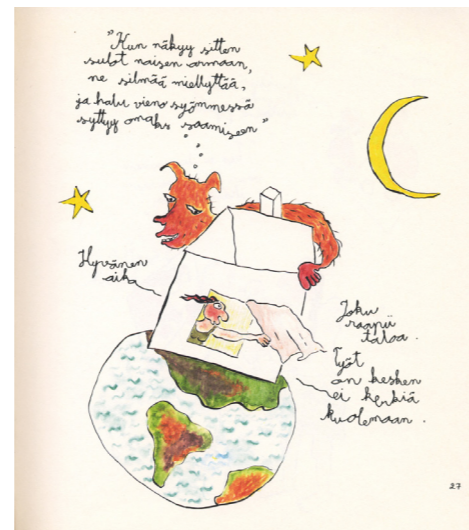 "Kun näkyy sitten
sulot naisen armaan,
ne silmää miellyttää,
ja halu vieno syömmessä
syttyy omaks saamiseen"
Hyvänen
aika
Joku
raapii
taloa.
Työt
on kesken
ei kerkiä
kuolemaan.
27